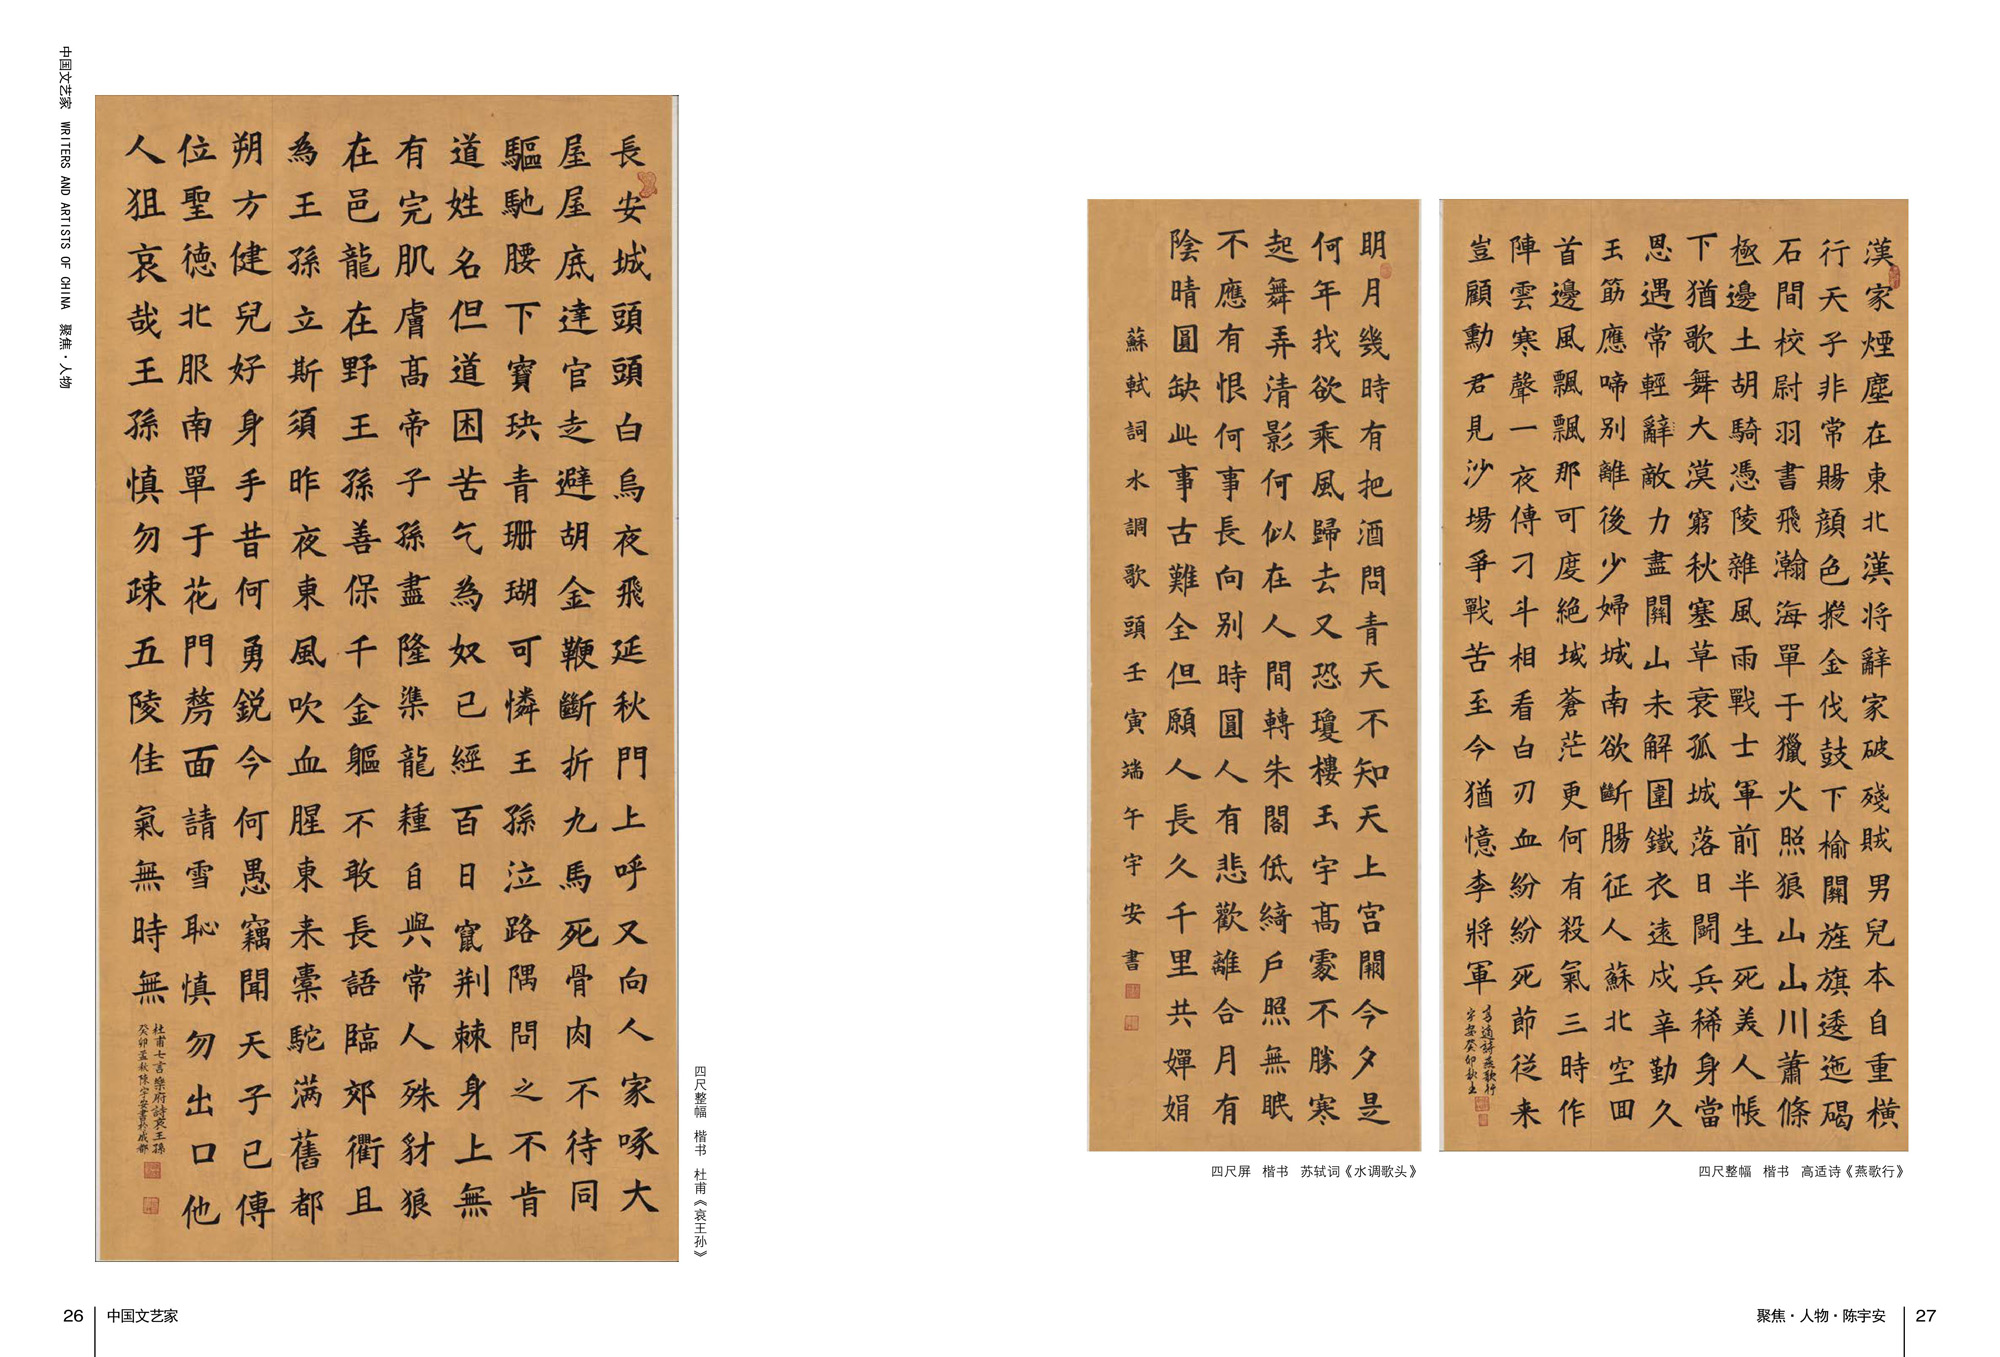 中国文艺家 WRITERS AND ARTISTS OF CHINA 聚焦·人物
長安城頭頭白烏夜飛延秋門上呼又向人家啄大
屋屋底達官走避胡金鞭斷折九馬死骨肉不待同
驅馳腰下寶玦青珊瑚可憐王孫泣路隅問之不肯
道姓名但道困苦乞為奴已經百日竄荆棘身上無
有完肌膚高帝子孫盡隆準龍種自與常人殊豺狼
在邑龍在野王孫善保千金軀不敢長語臨郊衢且
為王孫立斯須昨夜東風吹血腥東来橐駝满舊都
朔方健兒好身手昔何勇鋭今何愚竊聞天子已傳
位聖德北服南單于花門剺面請雪恥慎勿出口他
人狙哀哉王孫慎勿疎五陵佳氣無時無
杜甫七言樂府詩哀王孫
癸卯孟秋陳宇安書於成都
四尺整幅 楷书 杜甫《哀王孙》
26 中国文艺家
漢家煙塵在東北漢将辭家破殘賊男兒本自重橫
行天子非常賜顔色摐金伐鼓下榆關旌旗逶迤碣
石間校尉羽書飛瀚海單于獵火照狼山山川蕭條
極邊土胡騎憑陵雜風雨戰士軍前半生死美人帳
下猶歌舞大漠窮秋塞草衰孤城落日鬭兵稀身當
恩遇常輕辭敵力盡關山未解圍鐵衣遠戍辛勤久
玉筯應啼别離後少婦城南欲斷腸征人蘇北空回
首邊風飄飄那可度絕域蒼茫更何有殺氣三時作
陣雲寒聲一夜傳刁斗相看白刃血紛紛死節従来
豈顧勳君見沙場爭戰苦至今猶憶李將軍
高適詩燕歌行
宇安癸卯秋書
四尺整幅 楷书 高适诗《燕歌行》
明月幾時有把酒問青天不知天上宮闕今夕是
何年我欲乘風歸去又恐瓊樓玉宇高處不勝寒
起舞弄清影何似在人間轉朱閣低綺戶照無眠
不應有恨何事長向别時圓人有悲歡離合月有
陰晴圓缺此事古難全但願人長久千里共嬋娟
蘇軾詞水調歌頭壬寅端午宇安書
四尺屏 楷书 苏轼词《水调歌头》
聚焦·人物·陈宇安 27